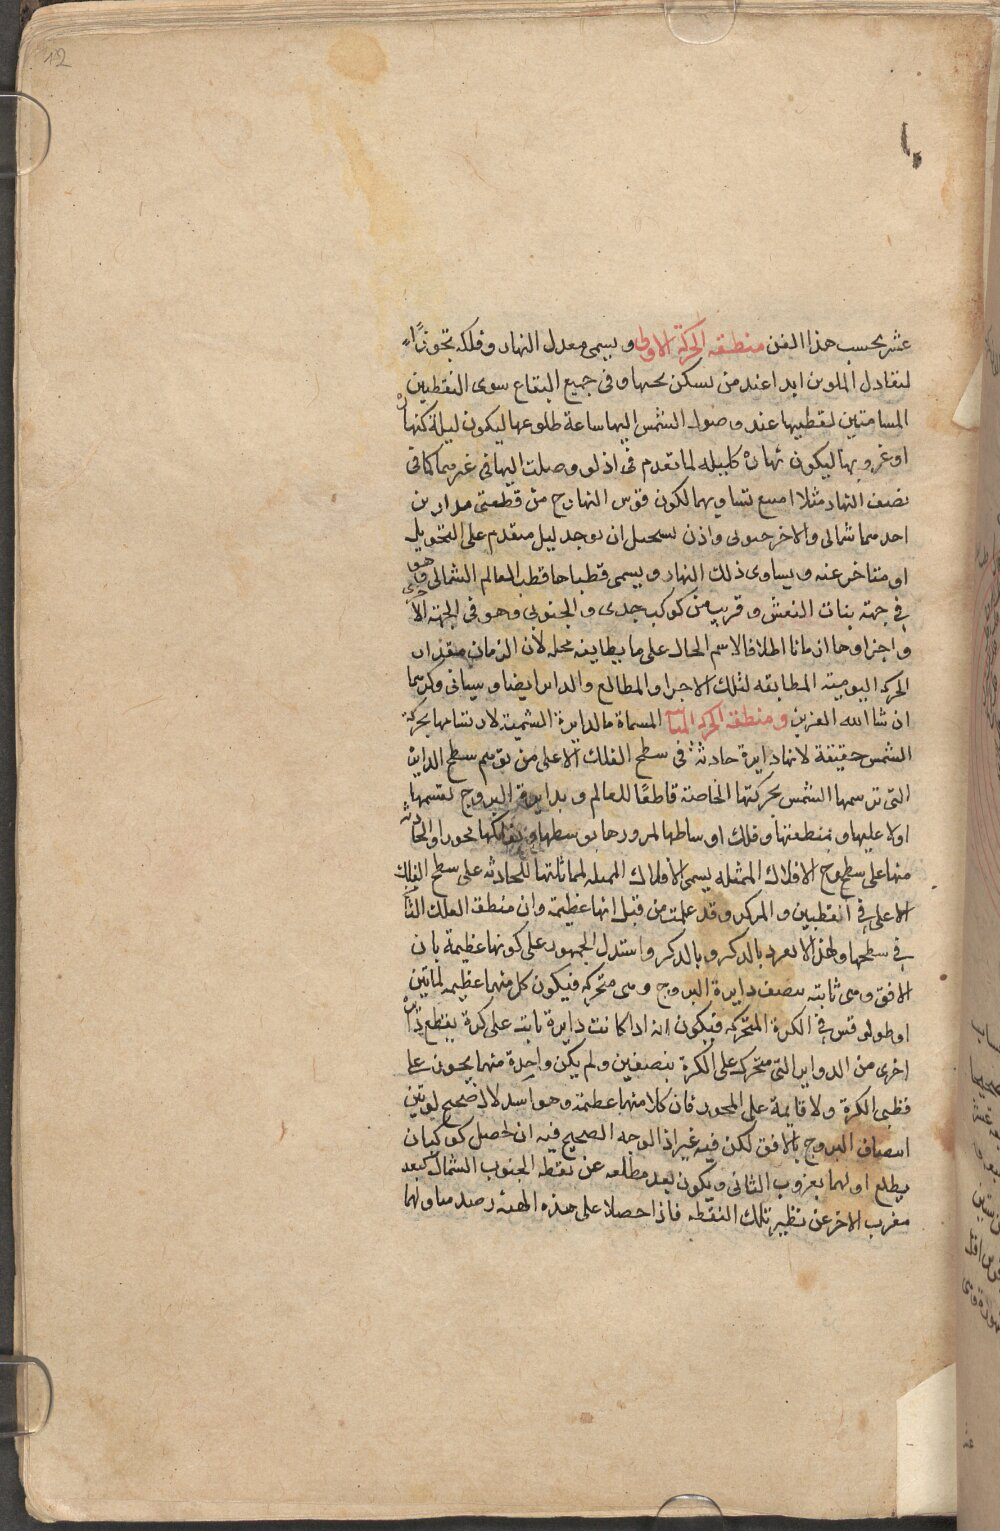 12
عشر بحسب هذا الفن منطقه الحركة الاولى ويسمى معدل النهار وفلكه تجوزًا
لتعادل الملوين ابدا عند من يسكن تحتها وفى جميع البقاع سوى النقطتين
المسامتين لقطبيها عند وصول الشمس اليها ساعة طلوعها ليكون ليله كنهاره
او غروبها ليكون نهاره كليله لما تقدم فى اذ لو وصلت اليها فى غيرهما كما فى
نصف النهار مثلا امتنع تساويهما لكون قوس النهار ح من قطعتى مدارين
احدهما شمالى والاخر جنوبى واذن يستحيل ان يوجد ليل متقدم على التحويل
او متاخر عنه ويساوى ذلك النهار ويسمى قطباها قطب العالم الشمالى وهو
فى جهة بنات النعش وقريب من كوكب جدى والجنوبى وهو فى الجهة الاخرى
واجزاوها ازمانا اطلاقا لاسم الحال على ما يطابق محله لان الزمان مقدار
الحركه اليوميه المطابقه لتلك الاجزا والمطالع والدائر ايضا وسياتى ذكرهما
ان شا الله العزيز ومنطقة الحركه الثانيه المسماة بالدايرة الشمسية لارتسامها بحركة
الشمس حقيقة لانها دايرة حادثة فى سطح الفلك الاعلى من توهم سطح الدايرة
التى ترسمها الشمس بحركتها الخاصة قاطعًا للعالم وبدايرة البروج لقسمها
اولا عليها وبمنطقتها وفلك اوساطها لمرورها بوسطها وبفلكها تجوزا والحادثة
منها على سطوح الافلاك الممثله يسمى الافلاك الممثله لمماثلتها للحادثه على سطح الفلك
الاعلى فى القطبين والمركز وقد علمت من قبل انها عظيمة وان منطقة الفلك الثامن
فى سطحها ولهذا لا تفرد بالذكر وبالذكر واستدل الجمهور على كونها عظيمة بان
الافق وهى ثابته ينصف دايرة البروج وهى متحركه فيكون كل منهما عظيمه لما تبين
اوطولوقس فى الكرة المتحركه فيكون انه اذا كانت دايرة ثابته على كرة يقطع دايرة
اخرى من الدواير التى متحرك على الكرة بنصفين ولم يكن واحدة منهما يجوز على
قطبى الكرة ولا قايمة على المحور فان كلا منهما عظيمة وهو استدلال صحيح لو تبين
انتصاف البروج بالافق لكن فيه غير اذ الوجه الصحيح فيه ان يحصل كوكبان
يطلع اولهما بغروب الثانى ويكون بعد مطلعه عن نقطه الجنوب الشمال كبعد
مغرب الاخر عن نظير تلك النقطه فاذا حصلا على هذه الهيئه رصد مساو لهما